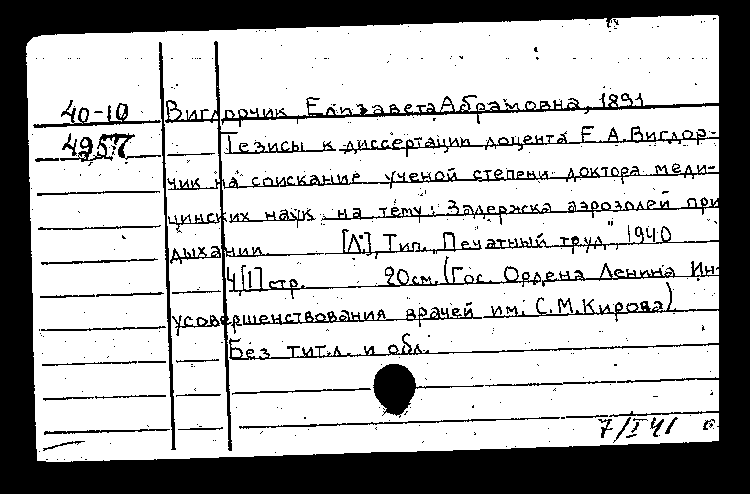 40-10 Вигдорчик, Елизавета Абрамовна, 1891
4957 Тезисы к диссертации доцента Е.А.Вигдор-
чик на соискание ученой степени доктора меди-
цинских наук на тему: Задержка аэрозолей при
дыхании. [Л.], Тип. "Печатный труд", 1940
4[1] стр. 20см. (Гос. Ордена Ленина Ин-
усовершенствования врачей им. С.М.Кирова)
Без тит.л. и обл.
7/I 41